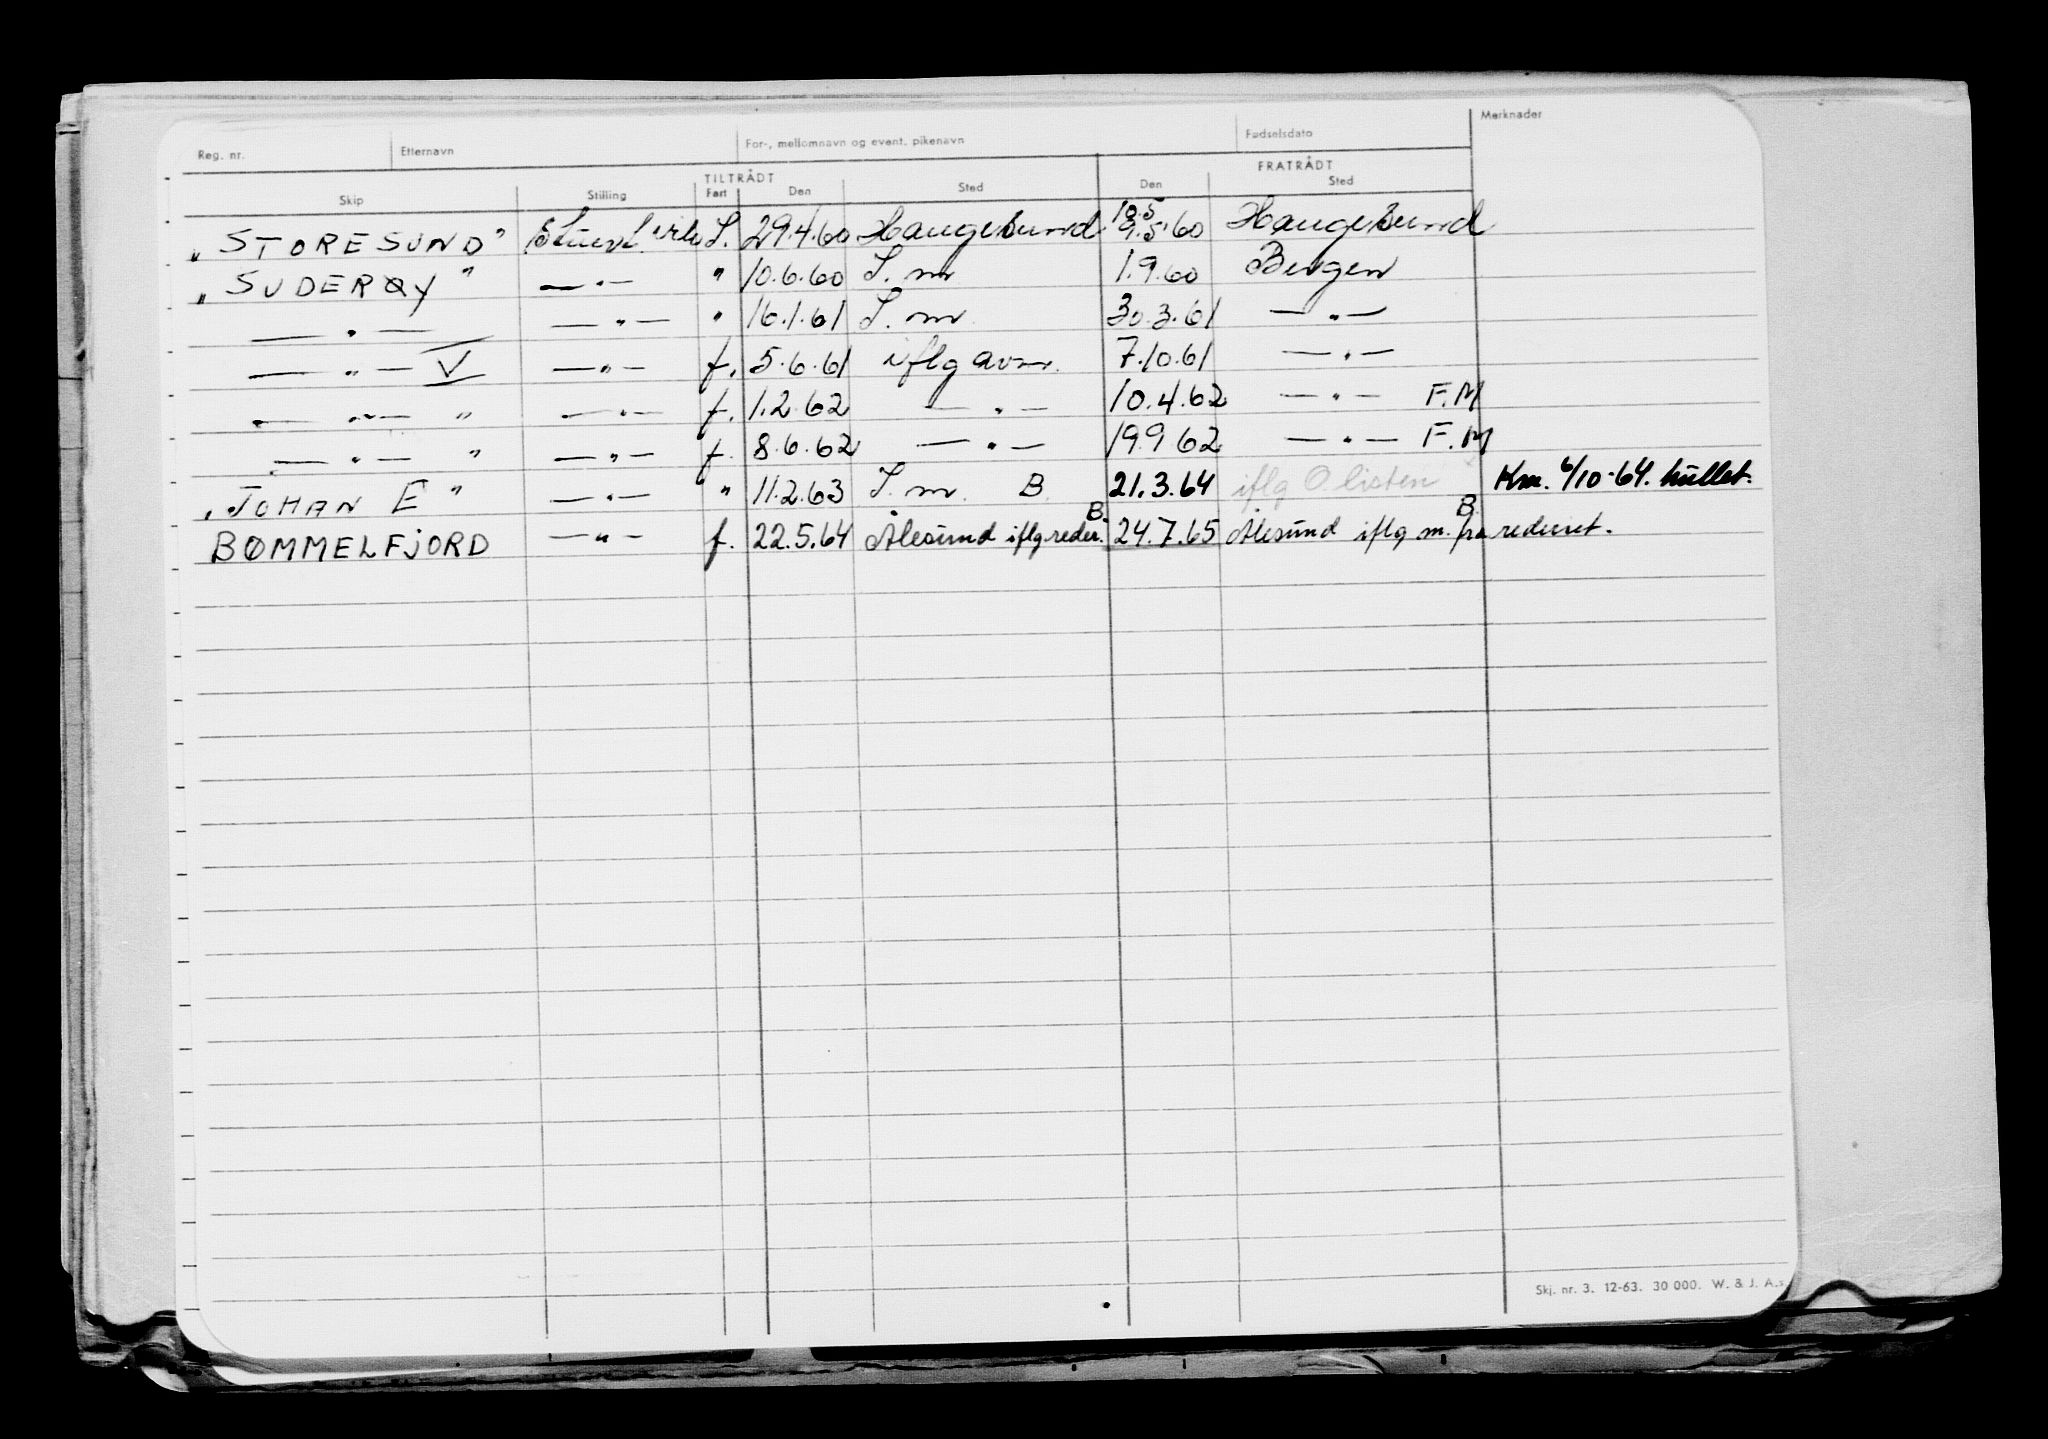 Reg. nr. Etternavn For-, mellomnavn og event. pikenavn Fødselsdato Merknader
TILTRÅDT FRATRÅDT
Skip Stilling Fart Den Sted Den Sted
10.5
"STORESUND" 29.4.60 Haugesund 9.5.60 Haugesund
"SUDERØY" — " — " 10.6.60 S. m 1.9.60 Bergen
— " — — " — " 16.1.61 S. m. 30.3.61 — " —
— " — V — " — f. 5.6.61 iflg avm. 7.10.61 — " —
— " — " — " — f. 1.2.62 — " — 10.4.62 — " — F.M
— " — " — " — f. 8.6.62 — " — 19.9.62 — " — F.M
"JOHAN E" — " — " 11.2.63 S. m. B. 21.3.64 iflg O.listen Km. 6/10-64. hullet.
BØMMELFJORD — " — f. 22.5.64 Ålesund iflg reder. B. 24.7.65 Ålesund iflg m. fra rederiet. B.
Skj. nr. 3. 12-63. 30 000. W. & J. A.s